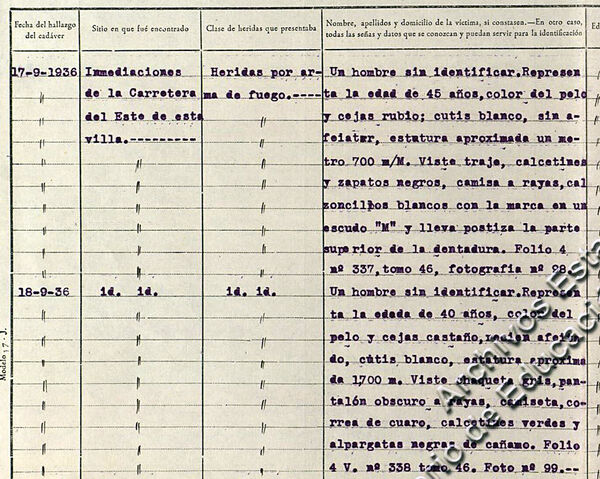 Fecha del hallazgo del cadáver
Sitio en que fué encontrado
Clase de heridas que presentaba
Nombre, apellidos y domicilio de la víctima, si constasen.—En otro caso,
todas las señas y datos que se conozcan y puedan servir para la identificación
Ed
17-9-1936 Inmediaciones Heridas por ar- Un hombre sin identificar.Represen
" de la Carretera ma de fuego.---- ta la edad de 45 años,color del pelo
" del Este de esta " y cejas rubio; cutis blanco, sin a-
" villa.--------- " feiater, estatura aproximada un me-
" " " tro 700 m/M. Viste traje, calcetines
" " " y zapatos negros, camisa a rayas,cal
" " " zoncillos blancos con la marca en un
" " " escudo "M" y lleva postiza la parte
" " " superior de la dentadura. Folio 4
" " " nº 337,tomo 46, fotografia nº 98.
18-9-36 id. id. id. id. Un hombre sin identificar.Represen
" " " ta la edada de 40 años, color del
" " " pelo y cejas castaño,recien afeita
" " " do, cutis blanco, estatura aproxima
" " " da 1,700 m. Viste chaqueta gris,pan-
" " " talón obscuro a rayas, camiseta,co-
" " " rrea de cuaro, calcetines verdes y
" " " alpargatas negras de cañamo. Folio
" " " 4 V. nº 338 tomo 46. Foto nº 99.--
Modelo 57 - J.
Archivos Esta
rio de Educació